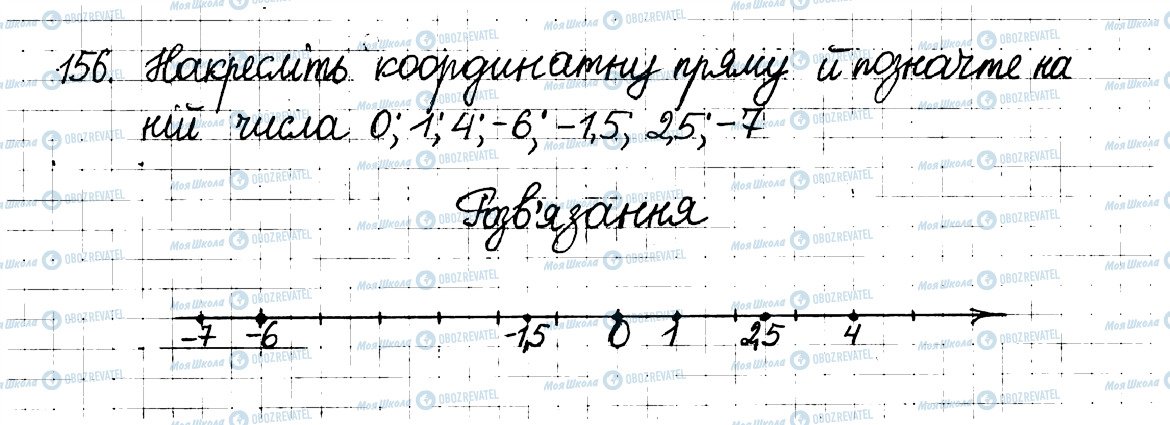 156. Накресліть координатну пряму й позначте на
ній числа 0; 1; 4; -6; -1,5; 2,5; -7
Розв'язання
-7 -6 -1,5 0 1 2,5 4